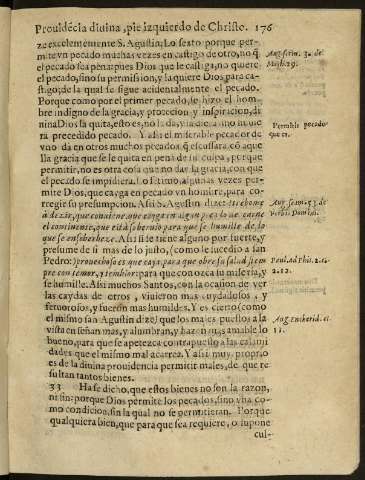 Prouidẽcia diuina, pie izquierdo de Christo. 176
ze excelentemente S. Agustin; Lo sexto porque per-
mite vn pecado muchas vezes en castigo de otro, no q̃
el pecado sea pena, pues Dios que le castiga, no quiere
el pecado, sino su permission, y la quiere Dios para cas-
tigo; de la qual se sigue acidentalmente el pecado.
Porque como por el primer pecado, se hizo el hom-
bre indigno de la gracia, y proteccion y inspiracion, di-
uina Dios la quita, esto es, no la da, y la diera si no huuie
ra precedido pecado. Y assi el miserable pecador de
vno da en otros muchos pecados q̃ escusara cõ aque
lla gracia que se le quita en pena de su culpa, porque
permitir, no es otra cosa que no dar la gracia, con que
el pecado se impidiera. Lo setimo, algunas vezes per-
mite Dios, que cayga en pecado vn hombre, para co-
rregir su presumpcion. Assi S. Agustin dize:
à dezir, que conuiene que cayga en algun pecado de carne
el continente, que està soberuio para que se humille de lo
que se ensoberueze. Assi si se tiene alguno por fuerte, y
presume de si mas de lo justo, (como le sucedio a San
Pedro:) prouechoso es que cayga, para que obre su salud siem
pre con temor, y temblor: para que conozca su miseria, y
se humille. Assi muchos Santos, con la ocasion de ver
las caydas de otros, viuieron mas cuydadosos, y
feruorosos, y fueron mas humildes. Y es cierto (como
el mismo san Agustin dize) que los males puestos a la
vista enseñan mas, y alumbran, y hazen mas amable lo
bueno, para que se apetezca contrapuesto a las calami
dades que el mismo mal acarrea. Y assi muy proprio
es de la diuina prouidencia permitir males, de que re
sultan tantos bienes.
33 Ha se dicho, que estos bienes no son la razon,
ni fin: porque Dios permite los pecados, sino vna co-
mo condicion, sin la qual no se permitieran. Porque
qualquiera bien, que para que sea requiere, o supone
cul-
Aug. serm. 3. de
Permite pecado
que es.
Aug. serm. 53. de
Verbis Domini.
Paul. Ad Phil. 2. c.
2. 12.
Aug. Enchirid. c.
11.